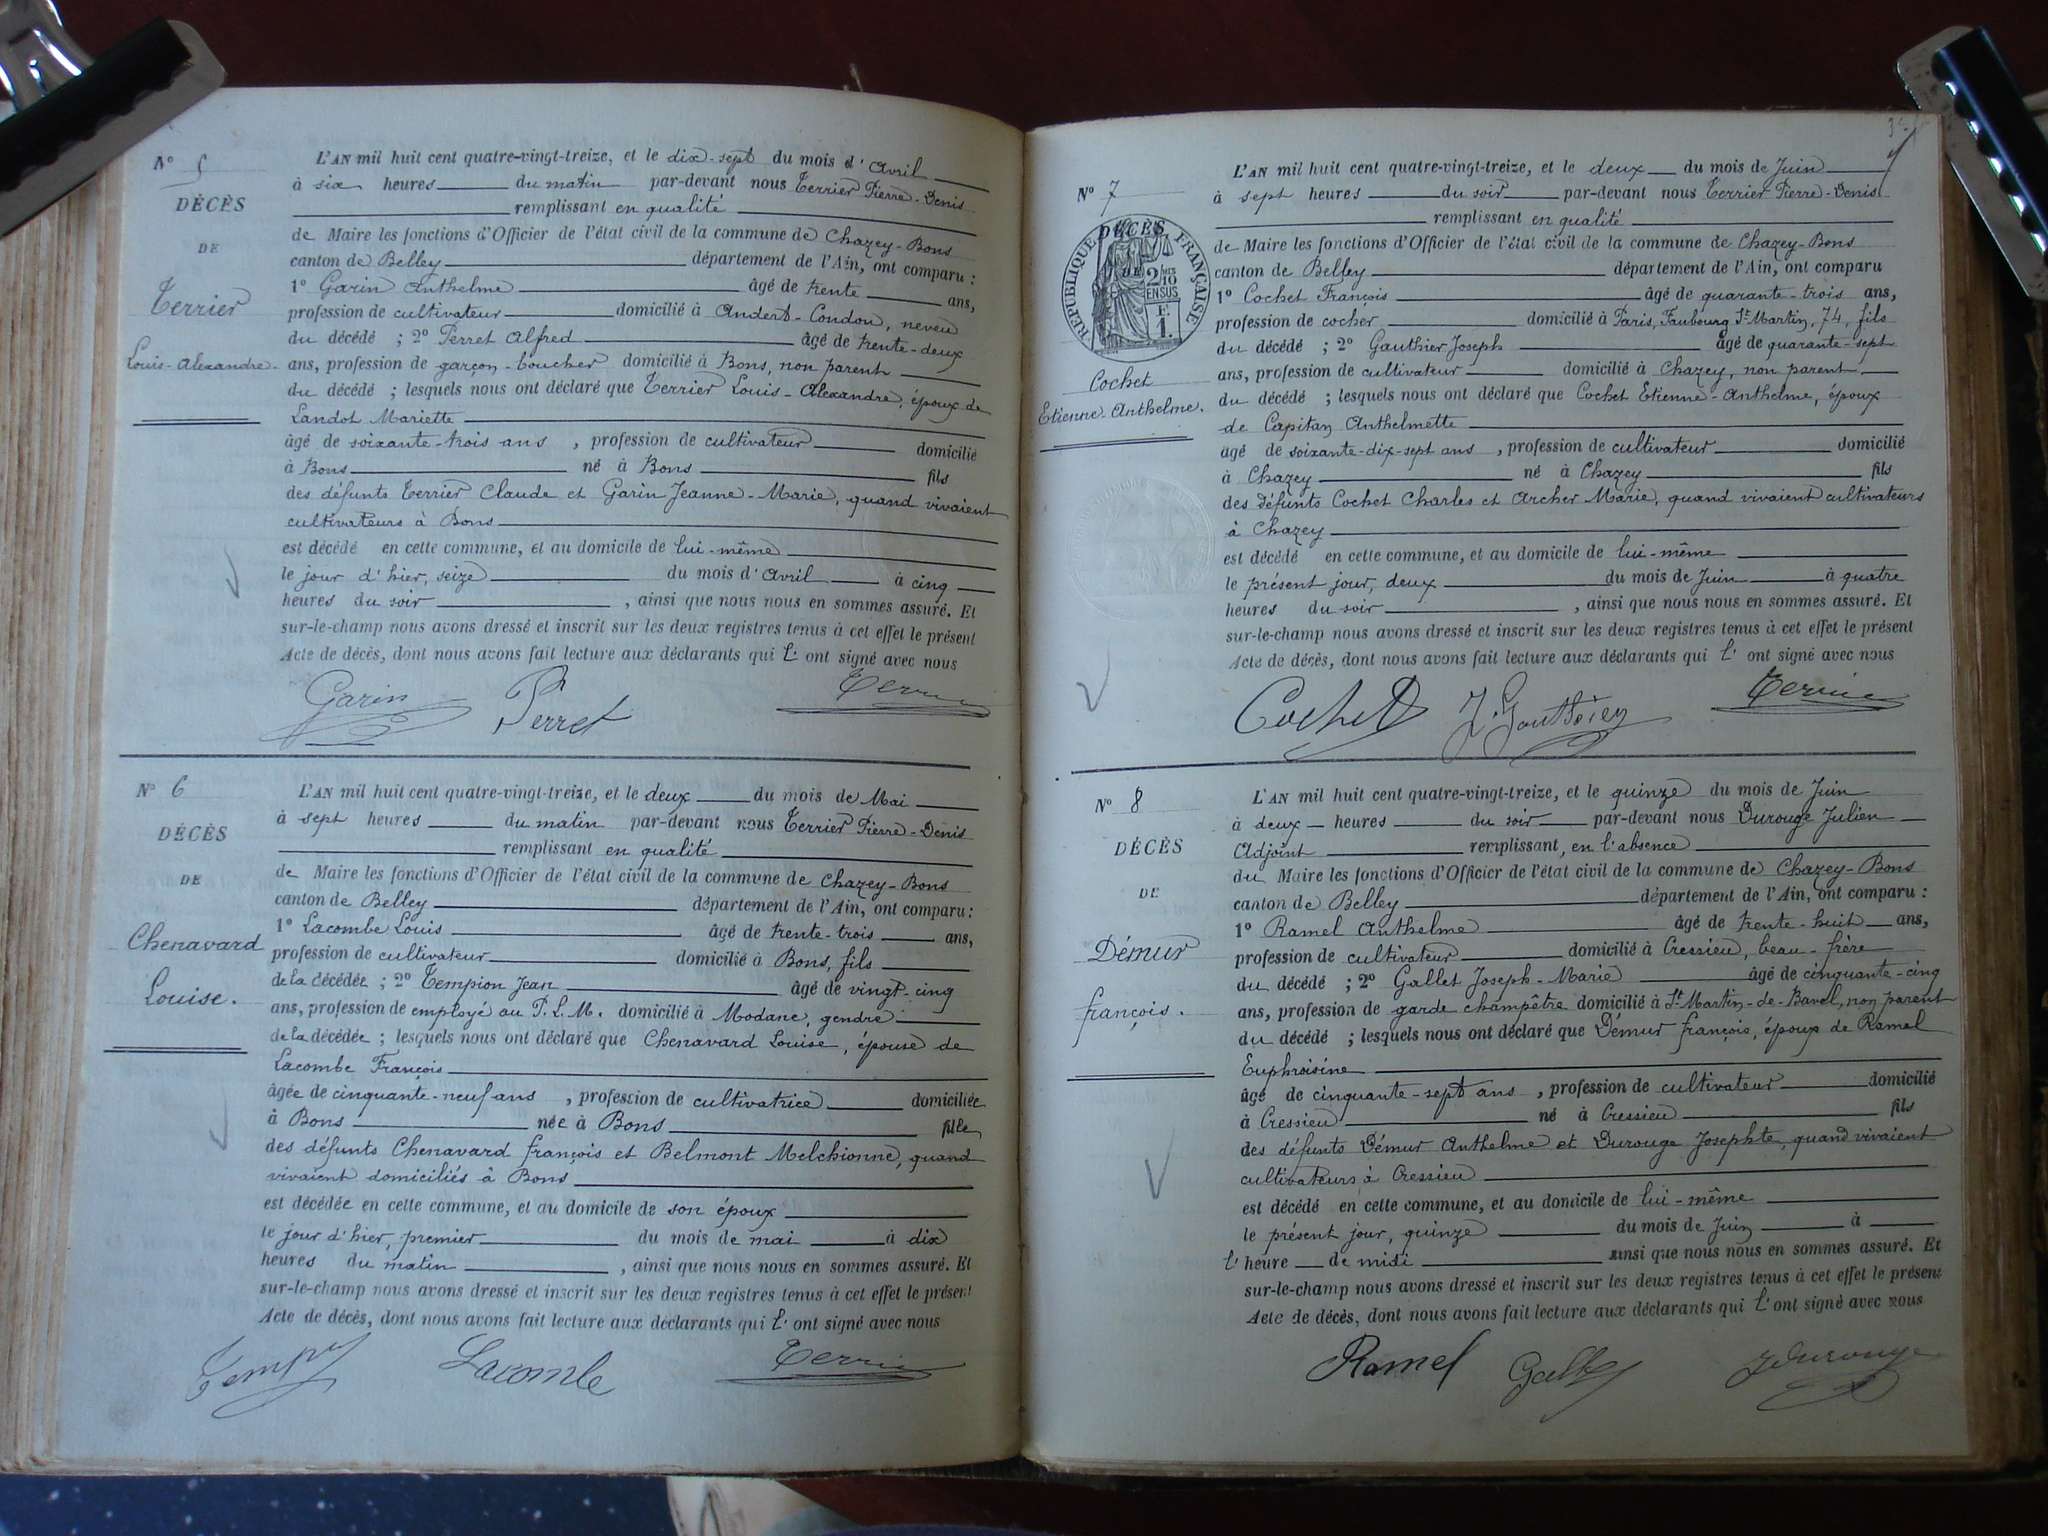 N° 5
DÉCÈS
DE
Terrier
Louis-Alexandre.
L'AN mil huit cent quatre-vingt-treize, et le dix-sept du mois d'Avril
à six heures du matin par-devant nous Terrier Pierre-Denis
remplissant en qualité
de Maire les fonctions d'Officier de l'état civil de la commune de Chazey-Bons
canton de Belley département de l'Ain, ont comparu :
1° Garin Anthelme âgé de trente ans,
profession de cultivateur domicilié à Andert-Condon, neveu
du décédé ; 2° Perret Alfred âgé de trente-deux
ans, profession de garçon-boucher domicilié à Bons, non parent
du décédé ; lesquels nous ont déclaré que Terrier Louis-Alexandre, époux de
Landot Mariette
âgé de soixante-trois ans, profession de cultivateur domicilié
à Bons né à Bons fils
des défunts Terrier Claude et Garin Jeanne-Marie, quand vivaient
cultivateurs à Bons
est décédé en cette commune, et au domicile de lui-même
le jour d'hier, seize du mois d'Avril à cinq
heures du soir, ainsi que nous nous en sommes assuré. Et
sur-le-champ nous avons dressé et inscrit sur les deux registres tenus à cet effet le présent
Acte de décès, dont nous avons fait lecture aux déclarants qui l'ont signé avec nous
Garin Perret Terrier
N° 6
DÉCÈS
DE
Chenavard
Louise.
L'AN mil huit cent quatre-vingt-treize, et le deux du mois de Mai
à sept heures du matin par-devant nous Terrier Pierre-Denis
remplissant en qualité
de Maire les fonctions d'Officier de l'état civil de la commune de Chazey-Bons
canton de Belley département de l'Ain, ont comparu :
1° Lacombe Louis âgé de trente-trois ans,
profession de cultivateur domicilié à Bons, fils
de la décédée ; 2° Tempion Jean âgé de vingt-cinq
ans, profession de employé au P.L.M. domicilié à Modane, gendre
de la décédée ; lesquels nous ont déclaré que Chenavard Louise, épouse de
Lacombe François
âgée de cinquante-neuf ans, profession de cultivatrice domiciliée
à Bons née à Bons fille
des défunts Chenavard françois et Belmont Melchionne, quand
vivaient domiciliés à Bons
est décédée en cette commune, et au domicile de son époux
le jour d'hier, premier du mois de mai à dix
heures du matin, ainsi que nous nous en sommes assuré. Et
sur-le-champ nous avons dressé et inscrit sur les deux registres tenus à cet effet le présent
Acte de décès, dont nous avons fait lecture aux déclarants qui l'ont signé avec nous
Lacombe Terrier
N° 7
DÉCÈS
DE
RÉPUBLIQUE FRANÇAISE
2/10 EN SUS
F. 1.
Cochet
Etienne-Anthelme.
L'AN mil huit cent quatre-vingt-treize, et le deux du mois de Juin
à sept heures du soir par-devant nous Terrier Pierre-Denis
remplissant en qualité
de Maire les fonctions d'Officier de l'état civil de la commune de Chazey-Bons
canton de Belley département de l'Ain, ont comparu
1° Cochet François âgé de quarante-trois ans,
profession de cocher domicilié à Paris, Faubourg St-Martin, 74, fils
du décédé ; 2° Gauthier Joseph âgé de quarante-sept
ans, profession de cultivateur domicilié à Chazey, non parent
du décédé ; lesquels nous ont déclaré que Cochet Etienne-Anthelme, époux
de Capitan Anthelmette
âgé de soixante-dix-sept ans, profession de cultivateur domicilié
à Chazey né à Chazey fils
des défunts Cochet Charles et Archer Marie, quand vivaient cultivateurs
à Chazey
est décédé en cette commune, et au domicile de lui-même
le présent jour, deux du mois de Juin à quatre
heures du soir, ainsi que nous nous en sommes assuré. Et
sur-le-champ nous avons dressé et inscrit sur les deux registres tenus à cet effet le présent
Acte de décès, dont nous avons fait lecture aux déclarants qui l'ont signé avec nous
Cochet Terrier
N° 8
DÉCÈS
DE
Démur
françois.
L'AN mil huit cent quatre-vingt-treize, et le quinze du mois de Juin
à deux heures du soir par-devant nous Durouge Julien
Adjoint remplissant, en l'absence
du Maire les fonctions d'Officier de l'état civil de la commune de Chazey-Bons
canton de Belley département de l'Ain, ont comparu :
1° Ramel Anthelme âgé de trente-huit ans,
profession de cultivateur domicilié à Cressieu, beau-frère
du décédé ; 2° Gallet Joseph-Marie âgé de cinquante-cinq
ans, profession de garde champêtre domicilié à St-Martin-de-Bavel, non parent
du décédé ; lesquels nous ont déclaré que Démur françois, époux de Ramel
Euphroisine
âgé de cinquante-sept ans, profession de cultivateur domicilié
à Cressieu né à Cressieu fils
des défunts Démur Anthelme et Durouge Josephte, quand vivaient
cultivateurs à Cressieu
est décédé en cette commune, et au domicile de lui-même
le présent jour, quinze du mois de Juin à
l'heure de midi ainsi que nous nous en sommes assuré. Et
sur-le-champ nous avons dressé et inscrit sur les deux registres tenus à cet effet le présent
Acte de décès, dont nous avons fait lecture aux déclarants qui l'ont signé avec nous
Ramel Gallet JDurouge